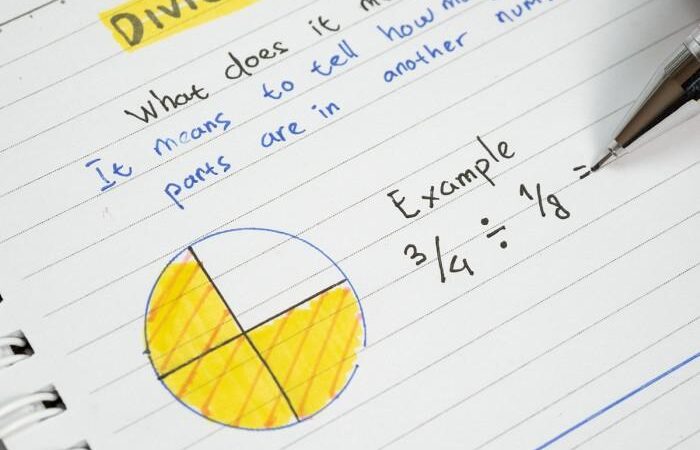 What does it
It means to tell how
parts are in another
Example
3/4 ÷ 1/8 =